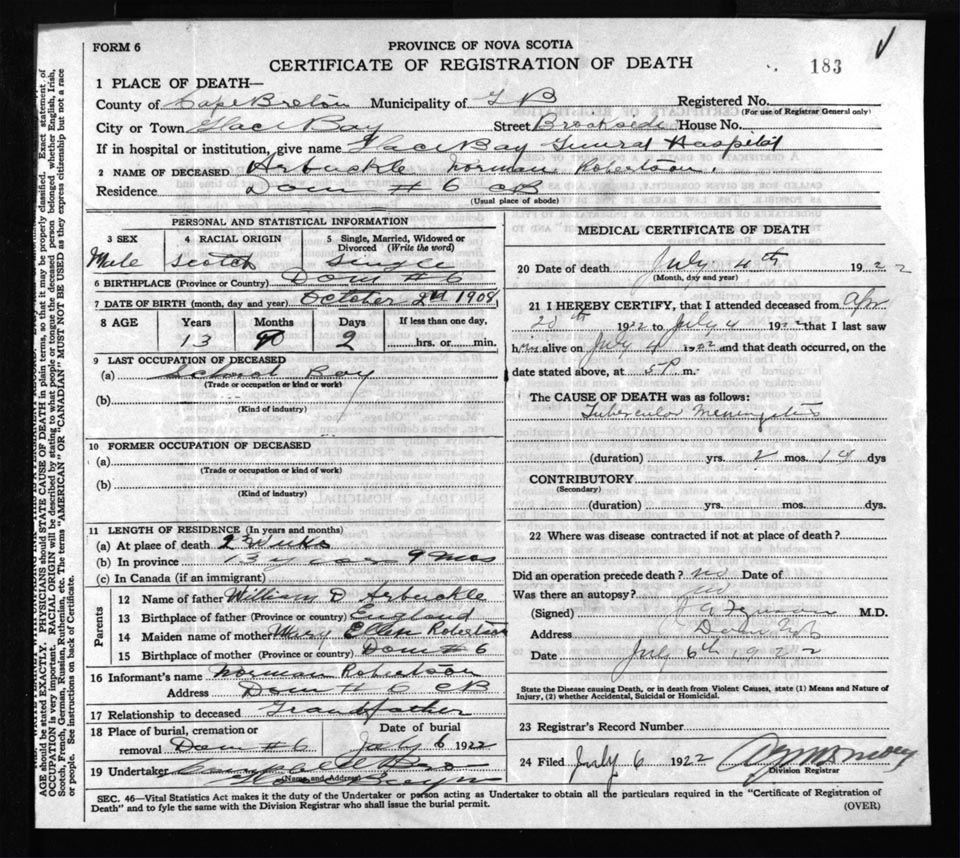 FORM 6
PROVINCE OF NOVA SCOTIA
CERTIFICATE OF REGISTRATION OF DEATH
183
1 PLACE OF DEATH—
County of Cape Breton Municipality of G B Registered No.
(For use of Registrar General only)
City or Town Glace Bay Street Brookside House No.
If in hospital or institution, give name Glace Bay General Hospital
2 NAME OF DECEASED Arbuckle Norman Robertson.
Residence Dom # 6 CB
(Usual place of abode)
PERSONAL AND STATISTICAL INFORMATION
3 SEX 4 RACIAL ORIGIN 5 Single, Married, Widowed or Divorced (Write the word)
Male Scotch Single
6 BIRTHPLACE (Province or Country) Dom # 6
7 DATE OF BIRTH (month, day and year) October 2nd 1908
8 AGE Years Months Days If less than one day,
13 2 hrs. or min.
9 LAST OCCUPATION OF DECEASED
(a) School Boy
(Trade or occupation or kind or work)
(b)
(Kind of industry)
10 FORMER OCCUPATION OF DECEASED
(a)
(Trade or occupation or kind or work)
(b)
(Kind of industry)
11 LENGTH OF RESIDENCE (In years and months)
(a) At place of death 2 weeks
(b) In province 13 years 9 mos
(c) In Canada (if an immigrant)
Parents
12 Name of father William D Arbuckle
13 Birthplace of father (Province or country) England
14 Maiden name of mother Mary Ellen Robertson
15 Birthplace of mother (Province or country) Dom # 6
16 Informant's name Norman Robertson
Address Dom # 6 CB
17 Relationship to deceased Grandfather
18 Place of burial, cremation or removal Dom #6 Date of burial July 6 1922
19 Undertaker Campbell
(Name and Address)
MEDICAL CERTIFICATE OF DEATH
20 Date of death July 4th 1922
(Month, day and year)
21 I HEREBY CERTIFY, that I attended deceased from Apr
20th 1922 to July 4 1922 that I last saw
him alive on July 4 1922 and that death occurred, on the
date stated above, at 5 P m.
The CAUSE OF DEATH was as follows:
Tubercular Meningitis
(duration) yrs. 2 mos. 14 dys
CONTRIBUTORY
(Secondary)
(duration) yrs. mos. dys.
22 Where was disease contracted if not at place of death?
Did an operation precede death? no Date of
Was there an autopsy? no
(Signed) M.D.
Address Dom
Date July 6th 1922
State the Disease causing Death, or in death from Violent Causes, state (1) Means and Nature of
Injury, (2) whether Accidental, Suicidal or Homicidal.
23 Registrar's Record Number
24 Filed July 6 1922
Division Registrar
SEC. 46—Vital Statistics Act makes it the duty of the Undertaker or person acting as Undertaker to obtain all the particulars required in the "Certificate of Registration of
Death" and to fyle the same with the Division Registrar who shall issue the burial permit.
(OVER)
AGE should be stated EXACTLY. PHYSICIANS should STATE CAUSE OF DEATH in plain terms, so that it may be properly classified. Exact statement of
OCCUPATION is very important. RACIAL ORIGIN will be described by stating to what people or tongue the deceased person belonged whether English, Irish,
Scotch, French, German, Russian, Ruthenian, etc. The terms "AMERICAN" OR "CANADIAN" MUST NOT BE USED as they express citizenship but not a race
or people. See instructions on back of Certificate.